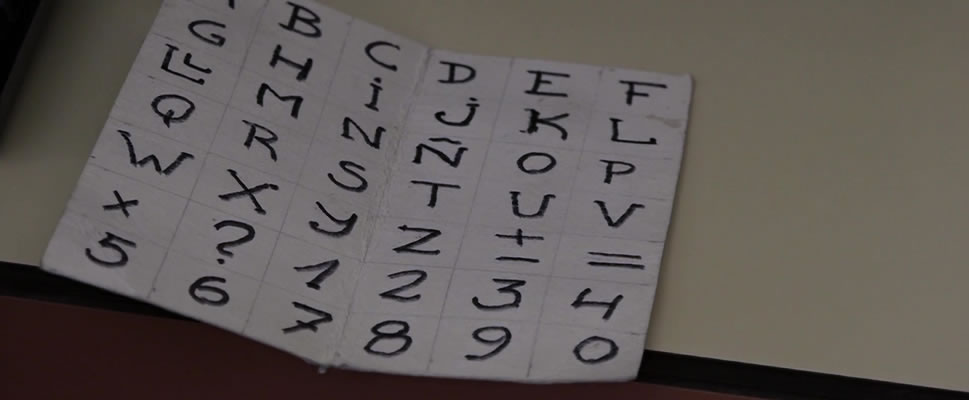 B C D E F
G H i J K L
LL M N Ñ O P
Q R S T U V
W X y Z ± =
x ? 1 2 3 4
5 6 7 8 9 0